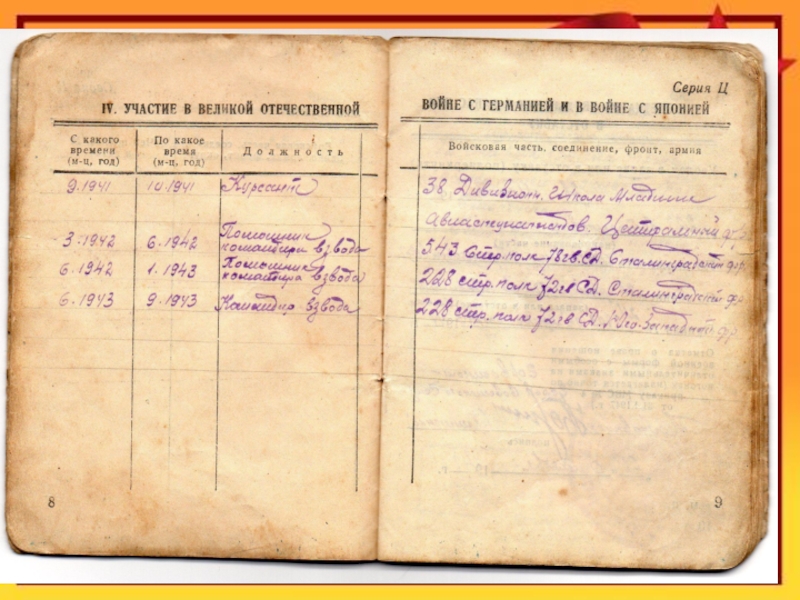 Серия Ц
IV. УЧАСТИЕ В ВЕЛИКОЙ ОТЕЧЕСТВЕННОЙ ВОЙНЕ С ГЕРМАНИЕЙ И В ВОЙНЕ С ЯПОНИЕЙ
С какого
времени
(м-ц, год)
По какое
время
(м-ц, год)
Должность
Войсковая часть, соединение, фронт, армия
9.1941 10.1941 Курсант 38. Дивизион. Школа Младших
Центральный фр.
3.1942 6.1942 Помошник
командира взвода 543 Стр. полк СД. Сталинградский фр.
6.1942 1.1943 Помошник
командира взвода 228 стр. полк 72 гв СД. Сталинградский фр.
6.1943 9.1943 Командир взвода 228 стр. полк 72 гв СД. Юго. Западный фр.
8
9